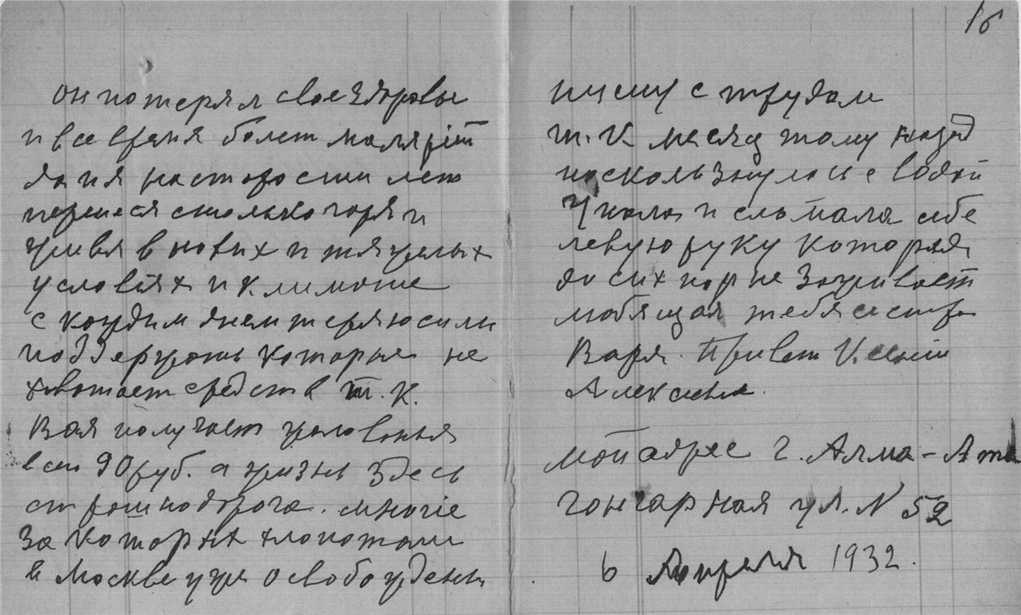 1б
он потерял свое здоровье
и все время болет малярiей
да и я на старости лет
перенеся столько горя и
живя в новых и тяжелых
условиях и климате
с каждим днем теряю силы
поддержать которые не
хватает средств т. к.
Вая получает жалованья
всего 90 руб. а жизнь здесь
страшно дорога. многiе
за которых хлопотали
в Москве уже освобождены
пишу с трудом
т. к. месяц тому назад
поскользнулась с водой
упала и сломала себе
левую руку которая
до сих пор не заживает
любящая тебя сестра
Варя. Привет Ксенiи
Алексеевне.
мой адрес г. Алма-Ата
гончарная ул. N 52
6 Апреля 1932.